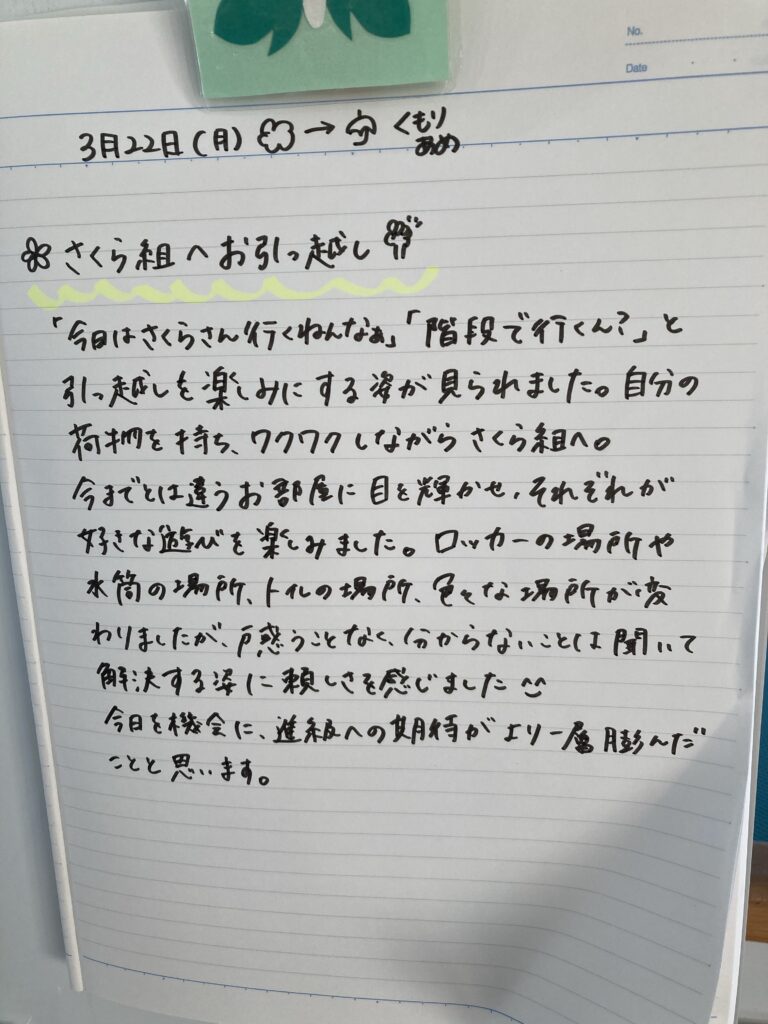 No.
Date
3月22日(月) → くもり
あめ
さくら組へお引っ越し
「今日はさくらさん行くねんなぁ」「階段で行くん?」と
引っ越しを楽しみにする姿が見られました。自分の
荷物を持ち、ワクワクしながらさくら組へ。
今までとは違うお部屋に目を輝かせ、それぞれが
好きな遊びを楽しみました。ロッカーの場所や
水筒の場所、トイレの場所、色々な場所が変
わりましたが、戸惑うことなく、分からないことは聞いて
解決する姿に頼しさを感じました
今日を機会に、進級への期待がより一層膨んだ
ことと思います。